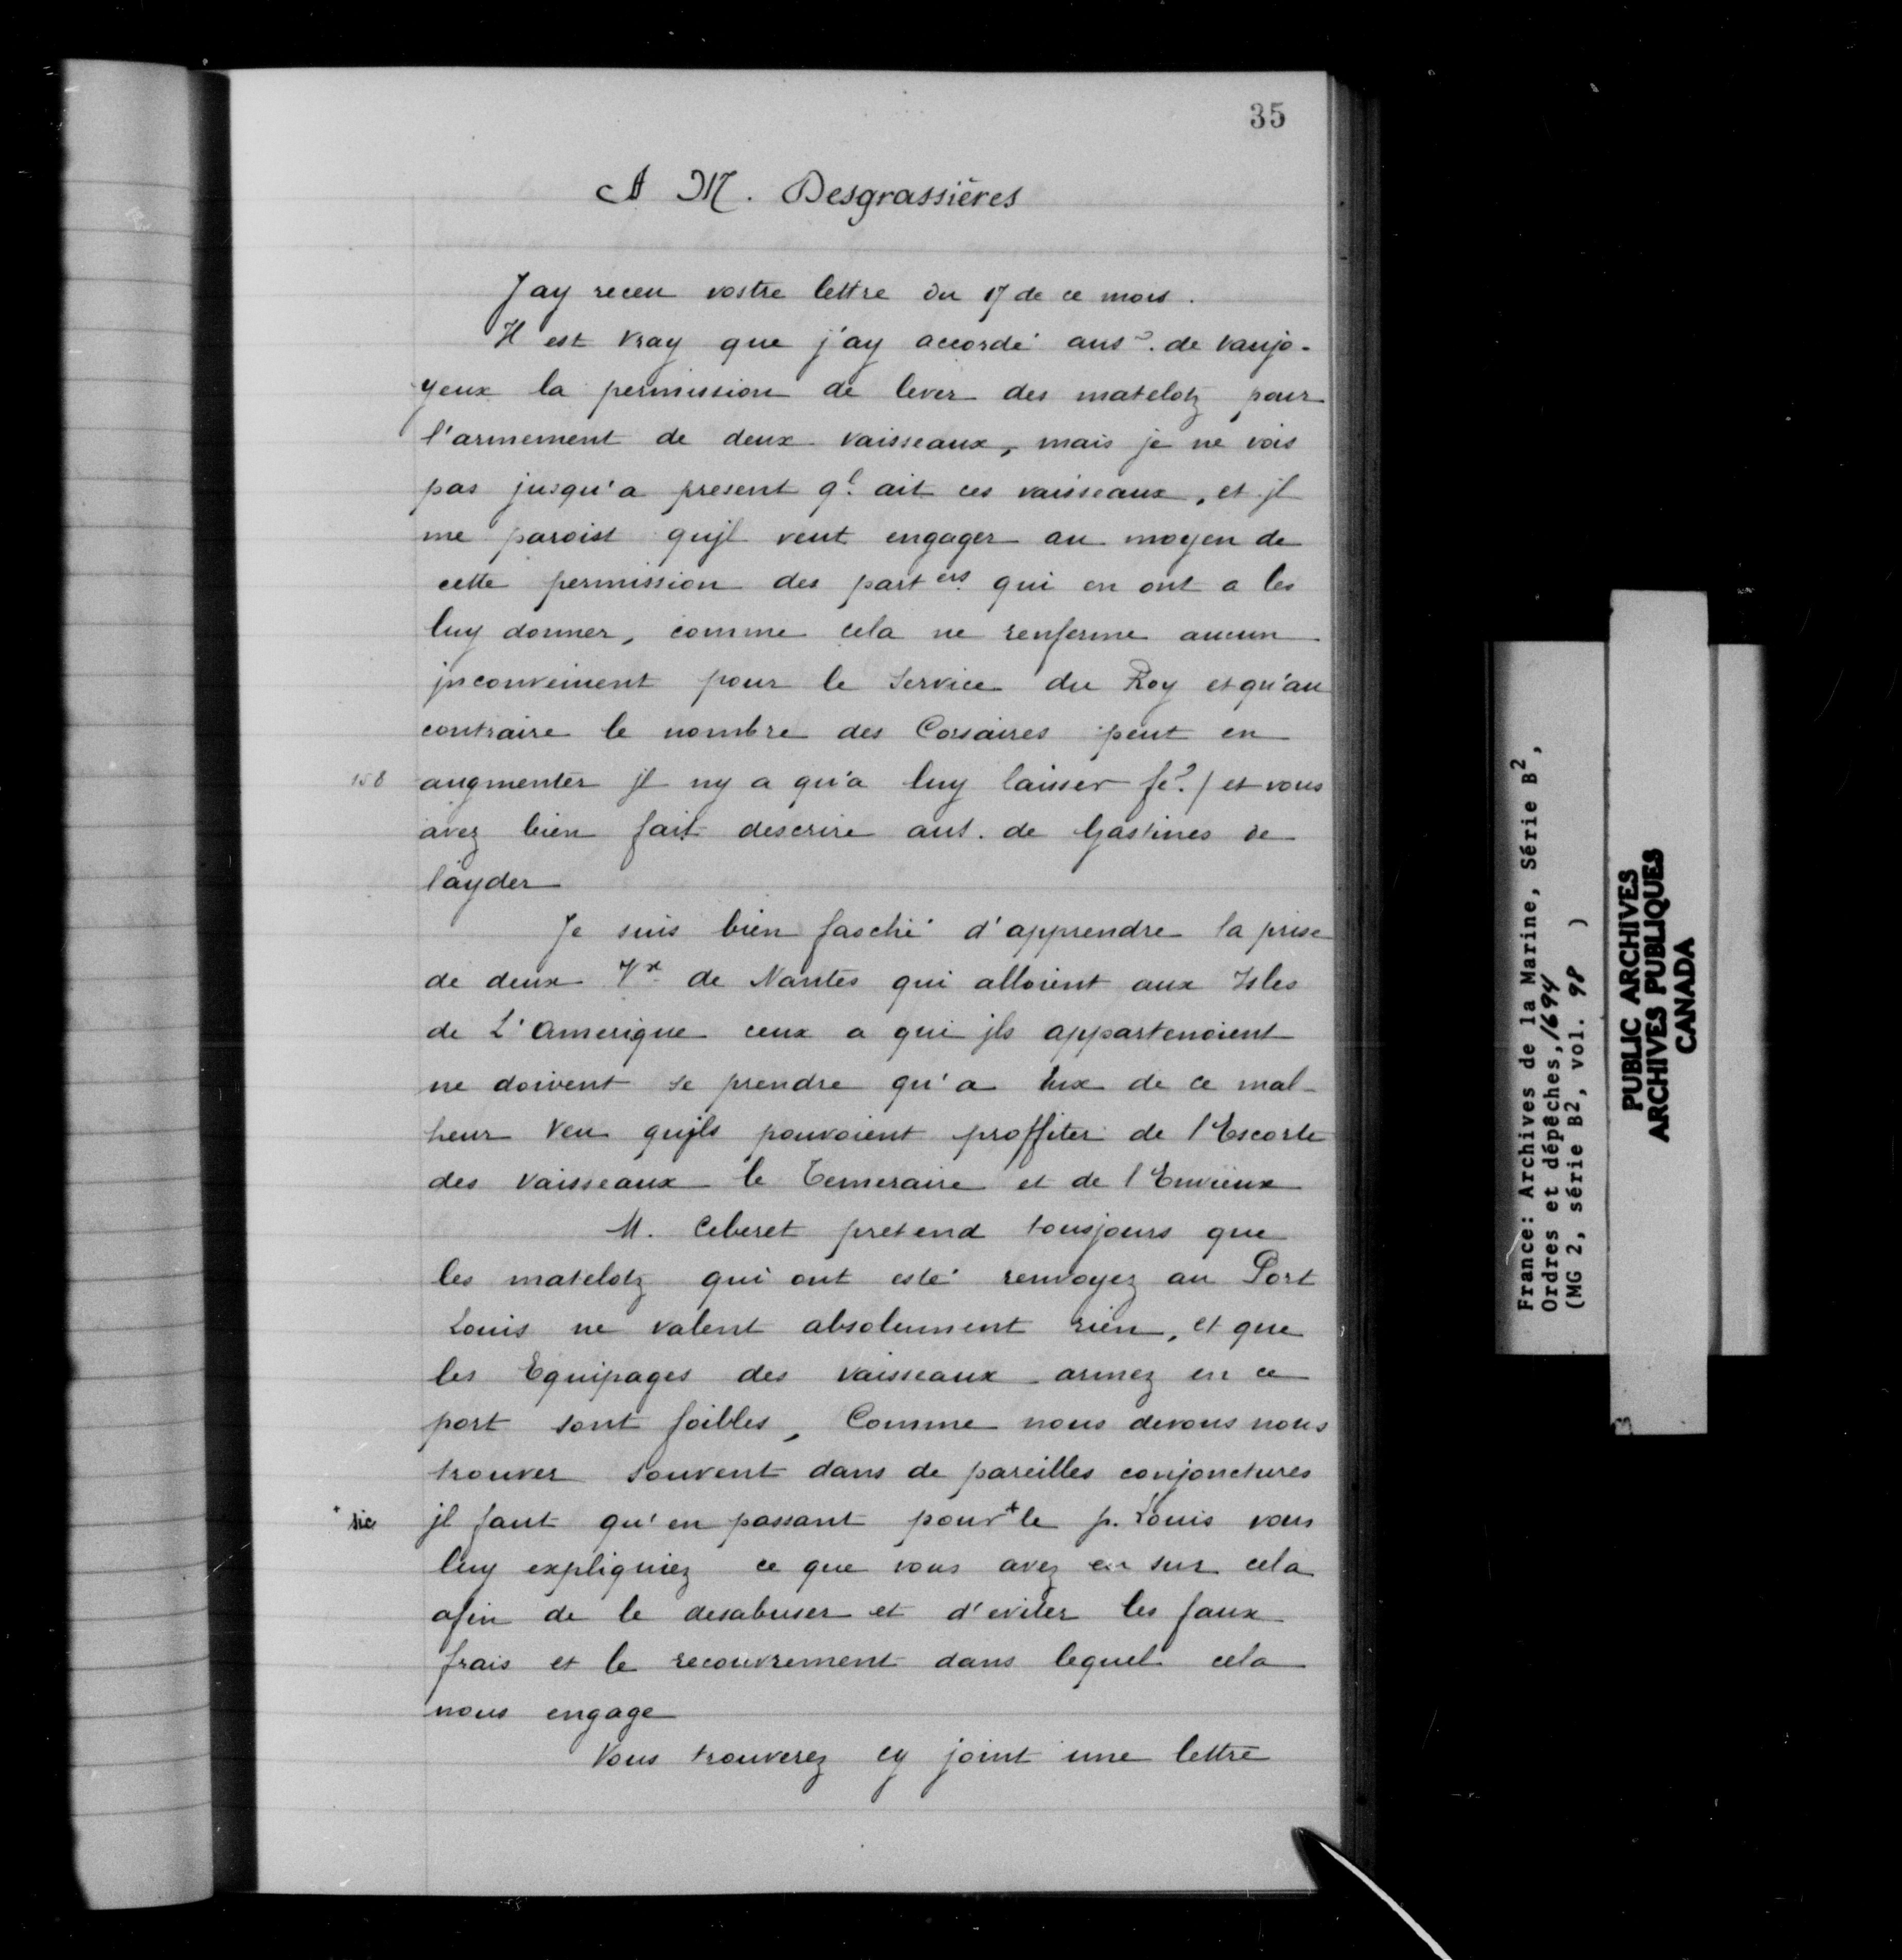 35
A M. Desgrassières
Jay receu vostre lettre du 17 de ce mois.
Il est vray que j'ay accordé aus.r de vaujo-
yeux la permission de lever des matelotz pour
l'armement de deux vaisseaux, mais je ne vois
pas jusqu'a present q.l ait ces vaisseaux, et jl
me paroist qujl veut engager au moyen de
cette permission des part.ers qui en ont a les
luy donner, comme cela ne renferme aucun
jnconvenient pour le Service du Roy et qu'au
contraire le nombre des Corsaires peut en
158 augmenter jl ny a qu'a luy laisser fe.? / et vous
avez bien fait descrire aus. de Gastines de
l'ayder
Je suis bien fasché d'apprendre la prise
de deux Vx de Nantes qui alloient aux Isles
de L'Amerique ceux a qui jls appartenoient
ne doivent se prendre qu'a Eux de ce mal-
heur veu qujls pouvoient proffiter de l'Escorte
des vaisseaux le Temeraire et de l'Envieux
M. Ceberet pretend tousjours que
les matelotz qui ont esté renvoyez au Port
Louis ne valent absolument rien, et que
les Equipages des vaisseaux armez en ce
port sont foibles, Comme nous devons nous
trouver souvent dans de pareilles conjonctures
+ sic jl faut qu'en passant pour + le p. Louis vous
luy expliquiez ce que vous avez eu sur cela
afin de le desabuser et d'eviter les faux
frais et le recouvrement dans lequel cela
nous engage
Vous trouverez cy joint une lettre
France: Archives de la Marine, Série B2,
Ordres et dépêches, 1694
(MG 2, série B2, vol. 98 )
PUBLIC ARCHIVES
ARCHIVES PUBLIQUES
CANADA